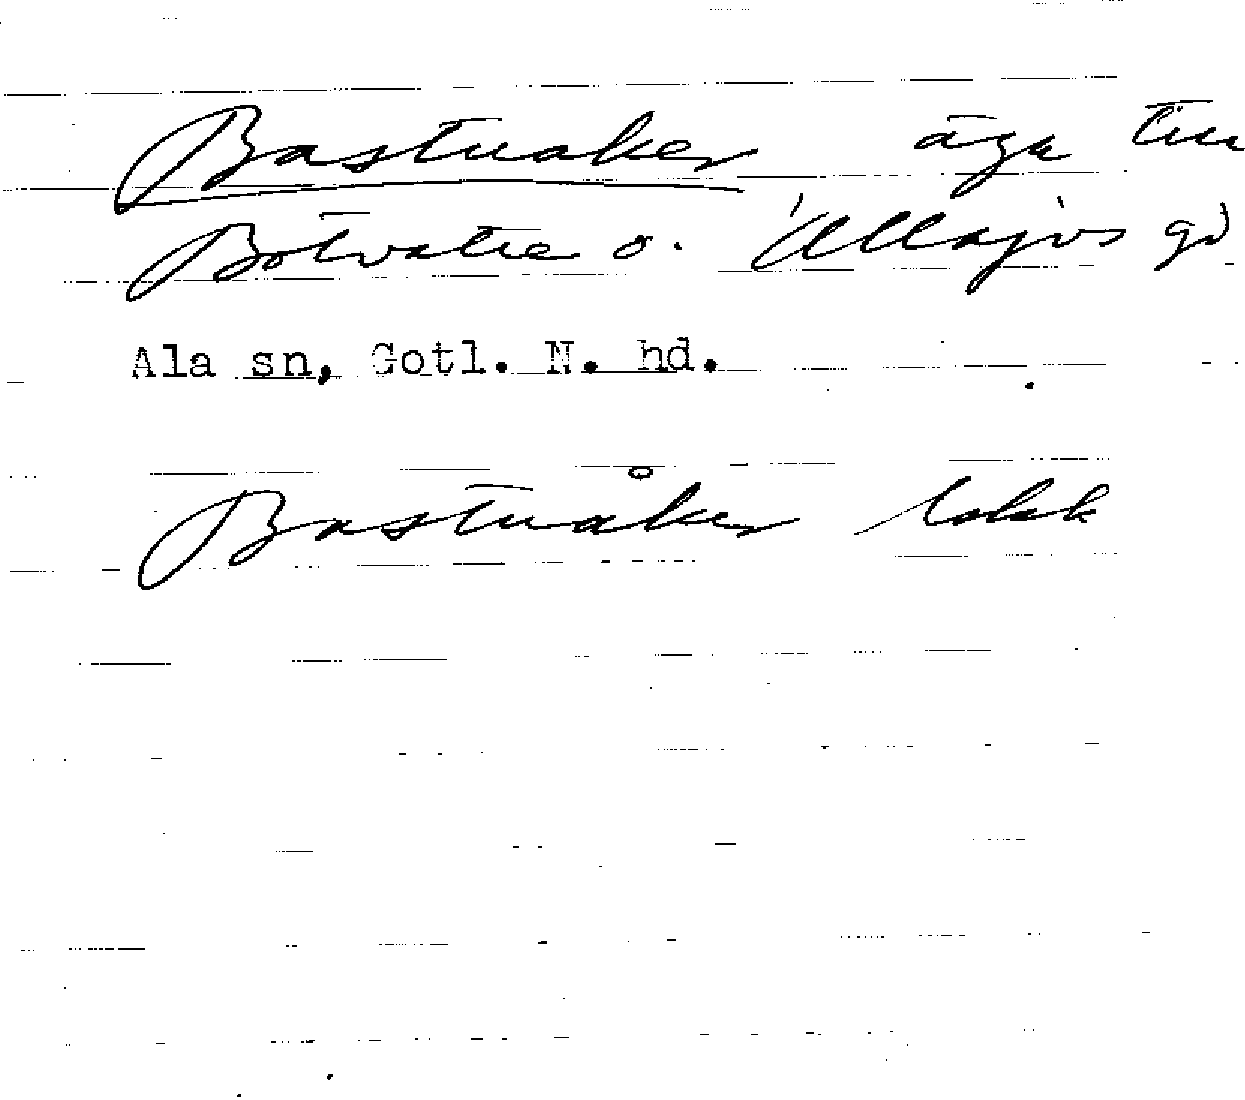 Bastuaker äga till
Botvatte o. Ullajvs gd
Ala sn, Gotl. N. hd.
Bastuåker lokk